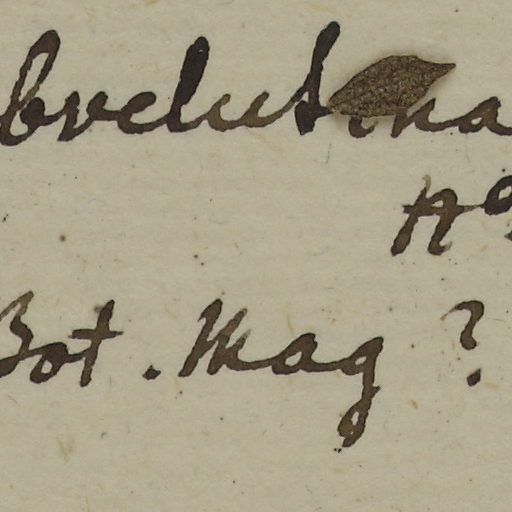 brelutina
Ho
Bot. Mag ?